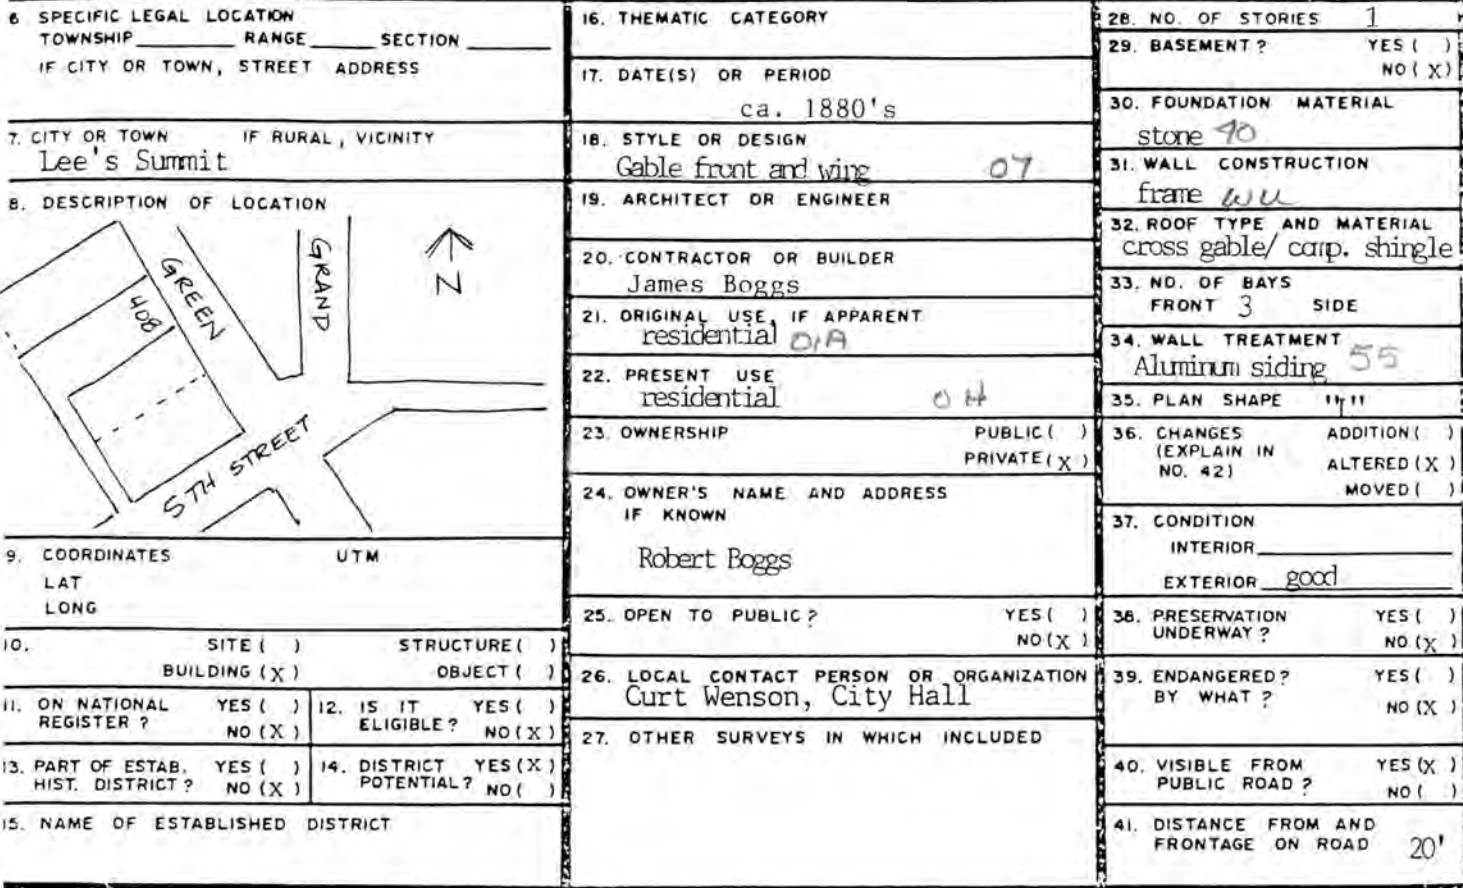 6 SPECIFIC LEGAL LOCATION
TOWNSHIP RANGE SECTION
IF CITY OR TOWN, STREET ADDRESS
7. CITY OR TOWN IF RURAL, VICINITY
Lee's Summit
8. DESCRIPTION OF LOCATION
GREEN
GRAND
N
408
5TH STREET
9. COORDINATES UTM
LAT
LONG
10. SITE ( ) STRUCTURE ( )
BUILDING (X) OBJECT ( )
11. ON NATIONAL REGISTER ? YES ( )
NO (X)
12. IS IT ELIGIBLE? YES ( )
NO (X)
13. PART OF ESTAB. HIST. DISTRICT ? YES ( )
NO (X)
14. DISTRICT POTENTIAL? YES (X)
NO ( )
15. NAME OF ESTABLISHED DISTRICT
16. THEMATIC CATEGORY
17. DATE(S) OR PERIOD
ca. 1880's
18. STYLE OR DESIGN
Gable front and wing 07
19. ARCHITECT OR ENGINEER
20. CONTRACTOR OR BUILDER
James Boggs
21. ORIGINAL USE, IF APPARENT
residential 01A
22. PRESENT USE
residential
23. OWNERSHIP PUBLIC ( )
PRIVATE (X)
24. OWNER'S NAME AND ADDRESS
IF KNOWN
Robert Boggs
25. OPEN TO PUBLIC ? YES ( )
NO (X)
26. LOCAL CONTACT PERSON OR ORGANIZATION
Curt Wenson, City Hall
27. OTHER SURVEYS IN WHICH INCLUDED
28. NO. OF STORIES 1
29. BASEMENT ? YES ( )
NO (X)
30. FOUNDATION MATERIAL
stone 40
31. WALL CONSTRUCTION
frame
32. ROOF TYPE AND MATERIAL
cross gable/ comp. shingle
33. NO. OF BAYS
FRONT 3 SIDE
34. WALL TREATMENT
Aluminum siding 55
35. PLAN SHAPE
36. CHANGES ADDITION ( )
(EXPLAIN IN
NO. 42) ALTERED (X)
MOVED ( )
37. CONDITION
INTERIOR
EXTERIOR good
38. PRESERVATION UNDERWAY ? YES ( )
NO (X)
39. ENDANGERED? YES ( )
BY WHAT ? NO (X)
40. VISIBLE FROM PUBLIC ROAD ? YES (X)
NO ( )
41. DISTANCE FROM AND
FRONTAGE ON ROAD 20'